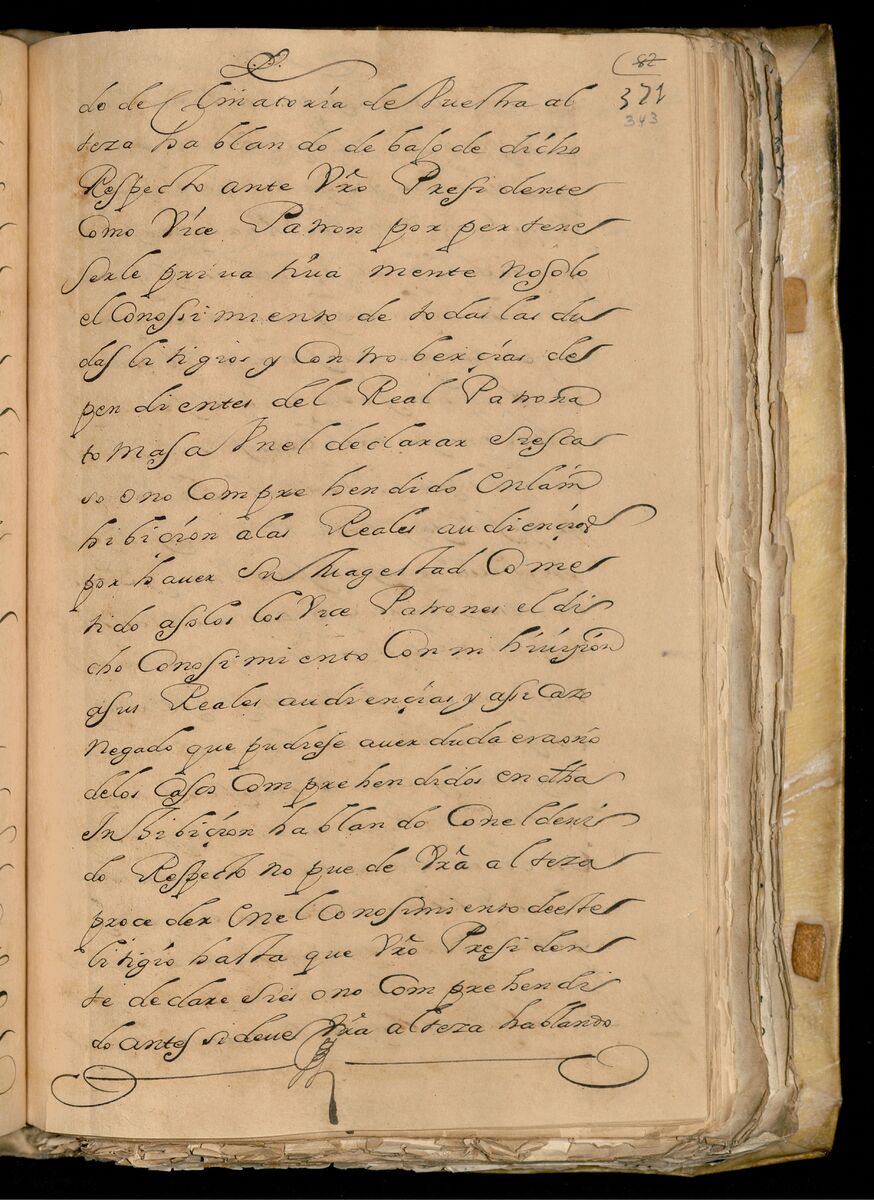 82
371
343
do de Clinatoria de Vuestra al
teza hablando de baso de dicho
Respecto ante Vro Presidente
Como Vice Patron por pertenes
serle priuatiua mente no solo
el Conossimiento de todas las du
das litigios y Controbercias des
pendientes del Real Patrona
to mas a Vn el declarar si es ca
so o no Comprehendido en la in
hibicion a las Reales audiencias
por hauer Su Magestad Come
tido a solos los Vice Patrones el di
cho Conosimiento Con inhiuision
a sus Reales audiencias y assi Caso
negado que pudiese auer duda era o no
de los Casos Comprehendidos en dha
Inhibicion hablando Con el deui
do Respecto no puede Vra alteza
proceder en el Conosimiento de este
litigio hasta que Vro Presiden
te declare si es o no Comprehendi
do antes si deue Vra alteza hablando